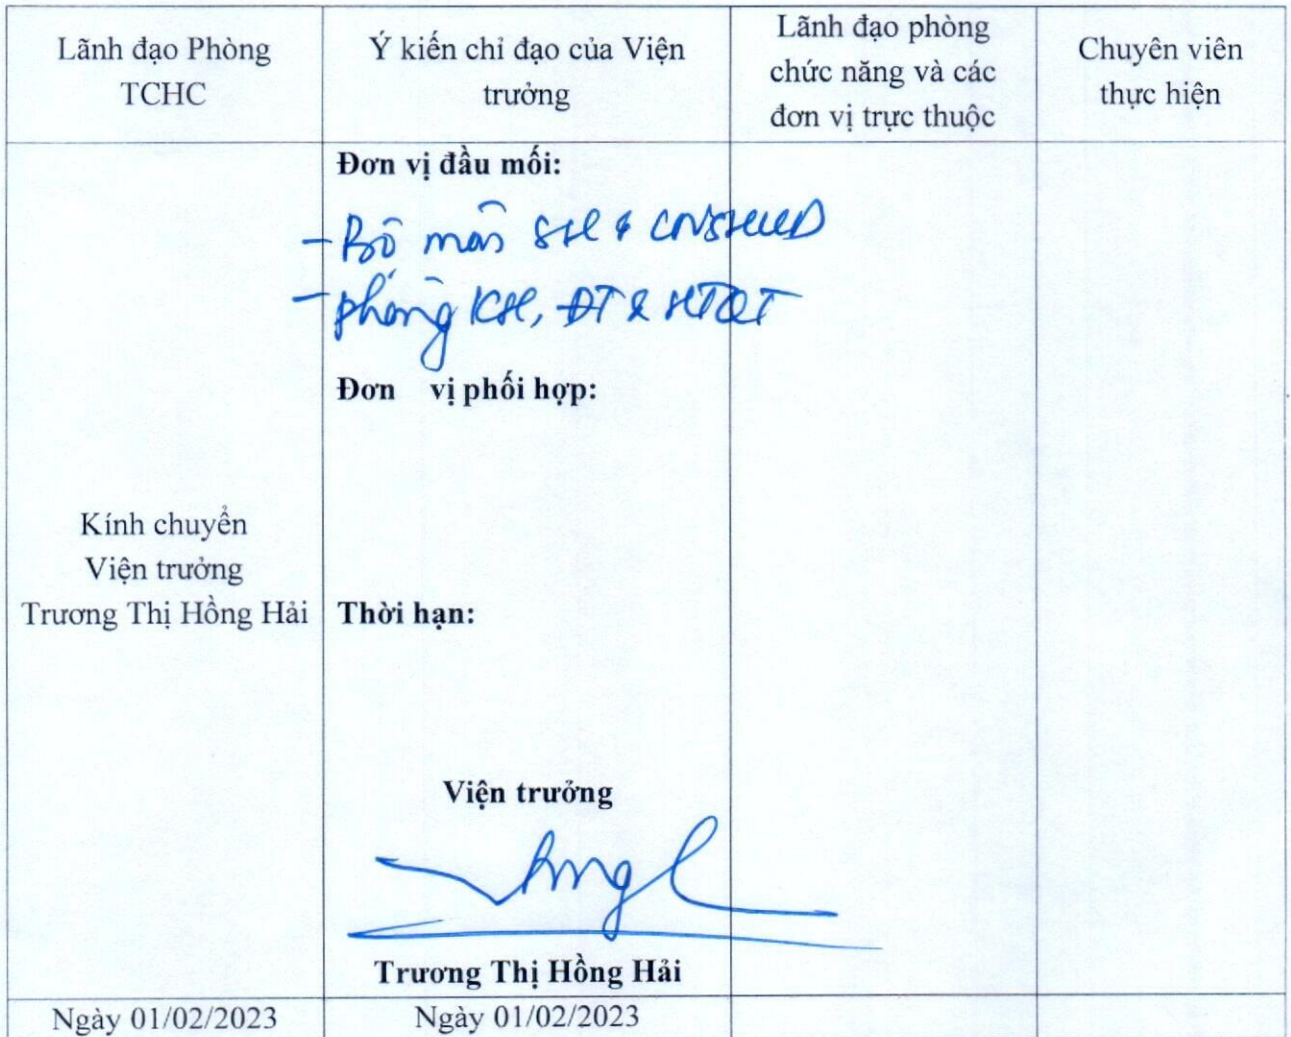 Lãnh đạo Phòng
TCHC
Ý kiến chỉ đạo của Viện
trưởng
Lãnh đạo phòng
chức năng và các
đơn vị trực thuộc
Chuyên viên
thực hiện
Kính chuyển
Viện trưởng
Trương Thị Hồng Hải
Đơn vị đầu mối:
- Bộ môn SH &
- Phòng KH, ĐT & HTQT
Đơn vị phối hợp:
Thời hạn:
Viện trưởng
Trương Thị Hồng Hải
Ngày 01/02/2023
Ngày 01/02/2023